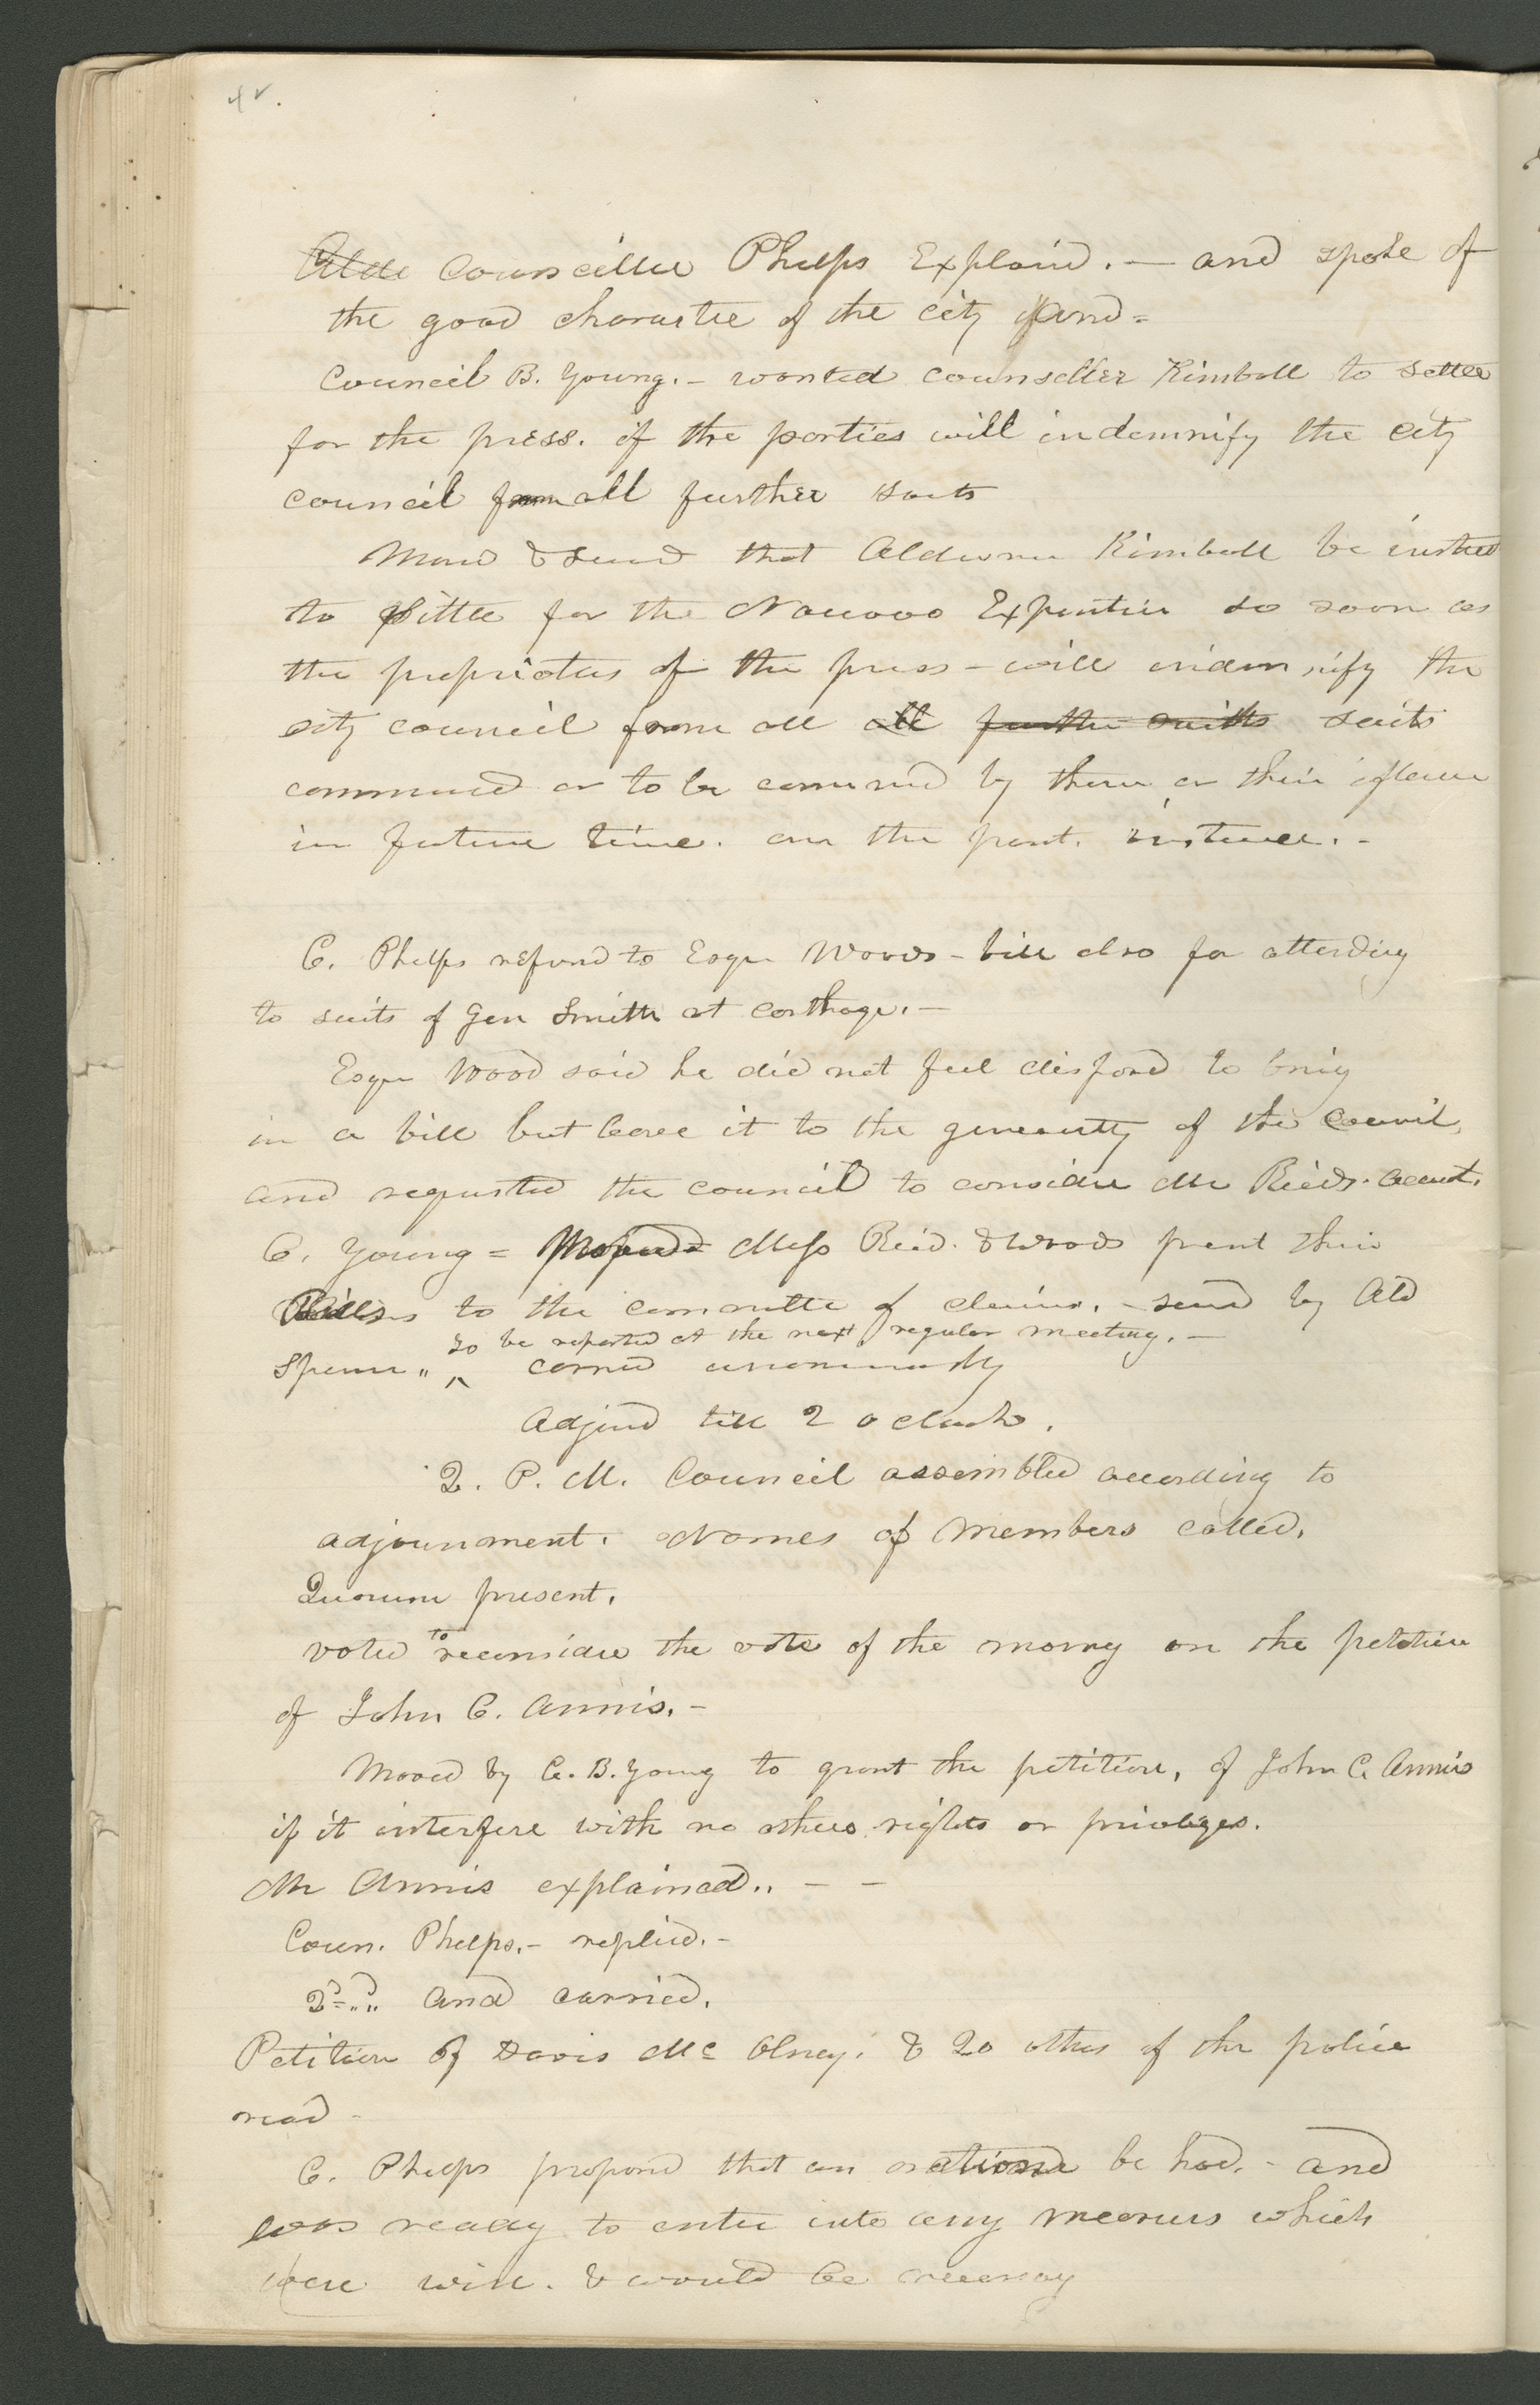 42.
Alde Councillor Phelps Explaind. — and spoke of
the good character of the city fund =
Council B. Young. – wanted counseller Kimball to settle
for the press. if the parties will indemnify the city
council from all further suits
Movd & secd that Alderman Kimball be instrted
to settle for the Nauvoo Expositor so soon as
the proprietors of the press – will indemnify the
city council from all all further suits suits
commencd or to be commencd by them or their
in future time. on the instance. –
C. Phelps referrd to Esqr Woods – bill also for attending
to suits of Gen Smith at carthage. —
Esqr Wood said he did not feel disposd to bring
in a bill but leave it to the generosity of the Council,
and requested the council to consider Mr Reids. account.
C. Young = Proposed Mess Reid. & Woods present their
Bills to the committe of claims. – secd by Ald
to be reported at the next regular meeting. —
Spencer „ ^ carried unanimously
Adjnd till 2 o clock.
2. P. M. Council assembled according to
adjournment. Names of Members called.
Quorum present.
voted to reconsider the vote of the morng on the petition
of John C. Annis. –
Moved by C. B. Young to grant the petition, of John C. Annis
if it interfere with no others rights or privileges.
Mr Annis explained.. – –
Coun. Phelps. – replied. –
2d „ and carried.
Petition of Davis Mc Olney. & 20 others of the police
read –
C. Phelps proposd that an be had. – and
was ready to enter into any measures which
were wise. & would be necessay